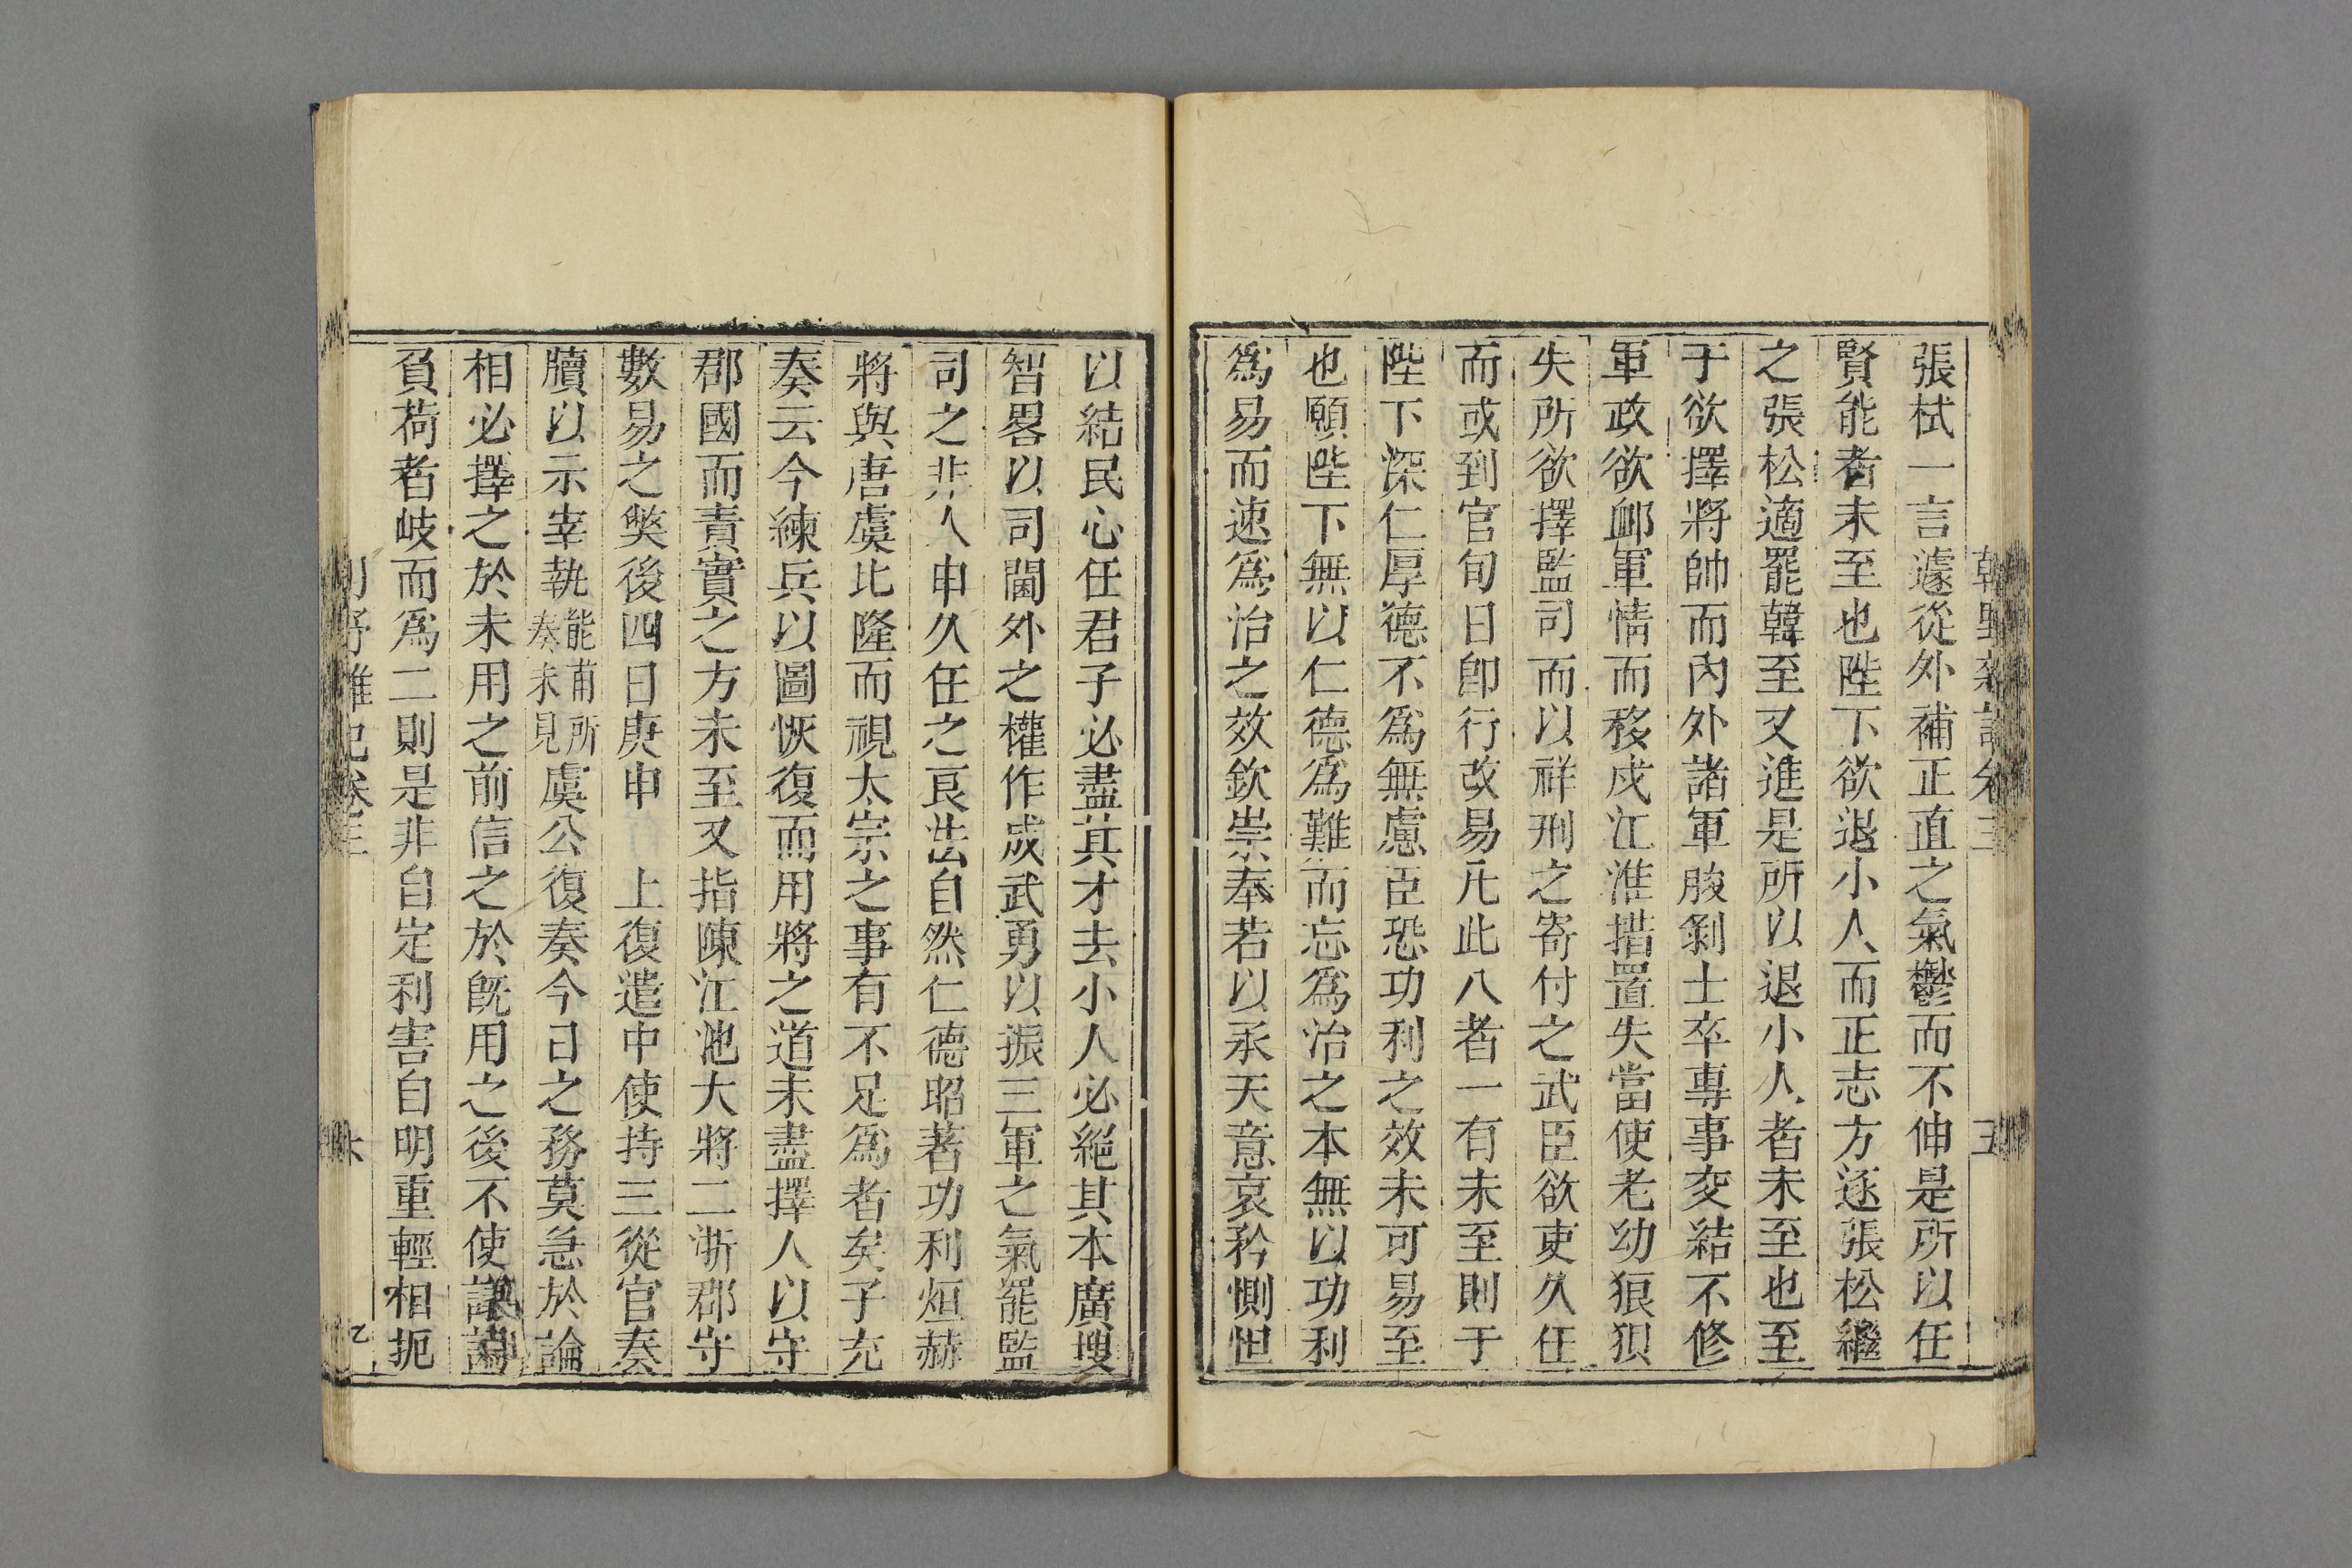 張栻一言遽從外補正直之氣鬱而不伸是所以任
賢能者未至也陛下欲退小人而正志方逐張松繼
之張松適罷韓至又進是所以退小人者未至也至
于欲擇將帥而內外諸軍朘剝士卒專事交結不修
軍政欲衈軍情而移戍江淮措置失當使老幼狼狽
失所欲擇監司而以祥刑之寄付之武臣欲吏久任
而或到官旬日卽行改易凡此八者一有未至則于
陛下深仁厚德不爲無慮臣恐功利之效未可易至
也願陛下無以仁德爲難而忘爲治之本無以功利
爲易而速爲治之效欽崇奉若以承天意哀矜惻怛
以結民心任君子必盡其才去小人必絕其本廣搜
智畧以司閫外之權作成武勇以振三軍之氣罷監
司之非人申久任之良法自然仁德昭著功利烜赫
將與唐虞比隆而視太宗之事有不足爲者矣子充
奏云今練兵以圖恢復而用將之道未盡擇人以守
郡國而責實之方未至又指陳江池大將二浙郡守
數易之獘後四日庚申 上復遣中使持三從官奏
牘以示宰執能甫所奏未見虞公復奏今日之務莫急於論
相必擇之於未用之前信之於旣用之後不使
負荷者岐而爲二則是非自定利害自明重輕相扼